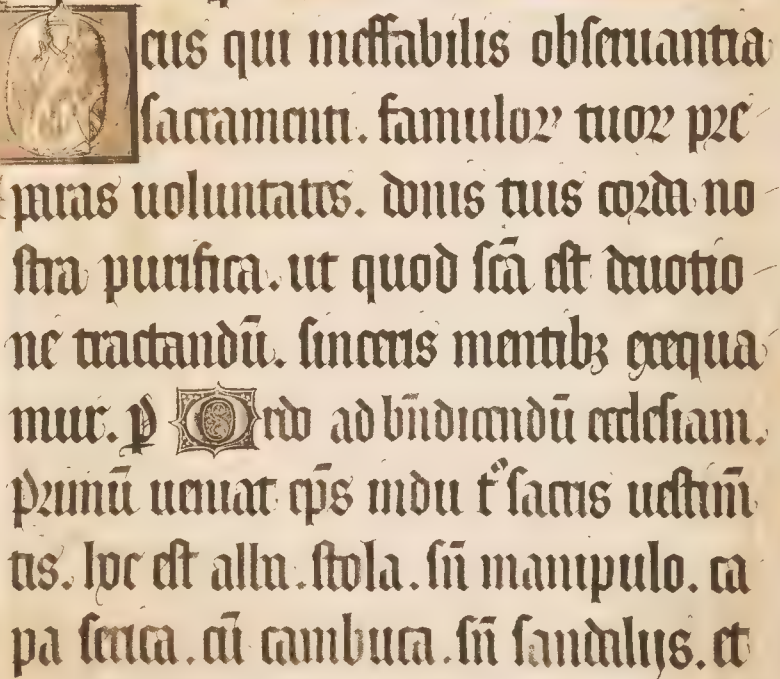 Deus qui ineffabilis obseruantia
sacramenti. famuloꝝ tuoꝝ pre
paras uoluntates. donis tuis corda no
stra purifica. ut quod scā est deuotio
ne tractandū. sinceris mentibꝫ exequa
mur. ꝑ Ordo ad bn̄dicendū ecclesiam.
Primū ueniat ep̄s indutꝰ sacris uestim̄
tis. hoc est alba. stola. sn̄ manipulo. ca
pa serica. cū cambuca. sn̄ sandaliis. et